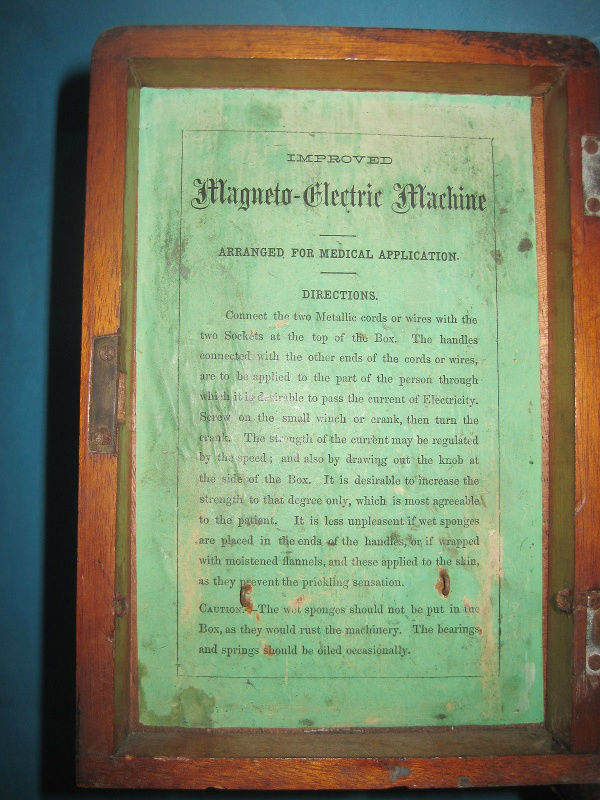 IMPROVED
Magneto-Electric Machine
ARRANGED FOR MEDICAL APPLICATION.
DIRECTIONS.
Connect the two Metallic cords or wires with the
two Sockets at the top of the Box. The handles
connected with the other ends of the cords or wires,
are to be applied to the part of the person through
which it is desirable to pass the current of Electricity.
Screw on the small winch or crank, then turn the
crank. The strength of the current may be regulated
by the speed; and also by drawing out the knob at
the side of the Box. It is desirable to increase the
strength to that degree only, which is most agreeable
to the patient. It is less unpleasent if wet sponges
are placed in the ends of the handles, or if wrapped
with moistened flannels, and these applied to the skin,
as they prevent the prickling sensation.
CAUTION.—The wet sponges should not be put in the
Box, as they would rust the machinery. The bearings
and springs should be oiled occasionally.